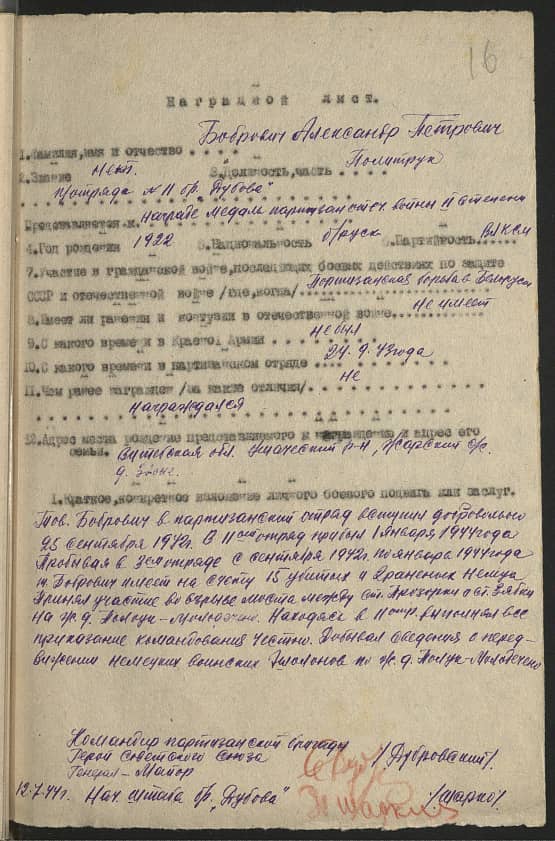 16
Наградной лист.
Бобрович Александр Петрович
1.Фамилия,имя и отчество . . . .
Политрук
2.Звание нет. 3.Должность,часть . . . . .
отряда №11 бр. "Дубова"
Представляется к. награде медаль партизанск. войны II степени
4.Год рождения 1922 5.Национальность б/русс 6.Партийность ВЛКСМ
7.Участие в гражданской войне,последующих боевых действиях по защите
СССР и отечественной войне /где,когда/ Партизанская борьба в Белорусси
8.Имеет ли ранения и контузии в отечественной войне не имеет
9.С какого времени в Красной Армии не был
10.С какого времени в партизанском отряде . . 24.9.43года
11.Чем ранее награжден /за какие отличия/. . не
награждался
12.Адрес места рождение представляемого к награждению и адрес его
семьи. Витебская обл. Ушачский р-н,
д.
1.Краткое,конкретное изложение личного боевого подвига или заслуг.
Тов. Бобрович в партизанский отряд вступил добровольно
25 сентября 1942г. В 11ый отряд прибыл 1 января 1944года
Пробывая в отряде с сентября 1942г. по январь 1944года
т. Бобрович имеет на счету 15 убитых и 2раненых немца
Принял участие во взрыве моста между ст. Прозорки и ст. Зябки
на ж.д. Полоцк-Молодечно. Находясь в 11отр. выполнял все
приказание командования честно. Добывал сведения о перед-
вижении немецких воинских эшолонов по ж.д. Полоцк-Молодечено
Командир партизанской бригады
Герой Советского Союза
Генерал-Майор /Дубровский/
12.7.44г. Нач. штаба бр. "Дубова" /Шарко/